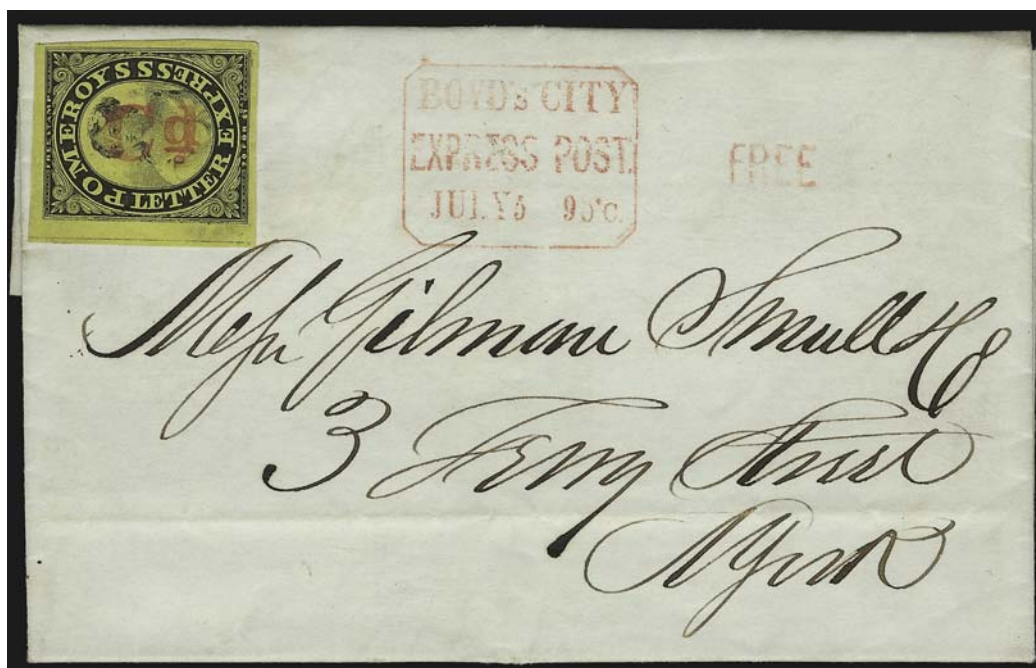 POMEROYS LETTER EXPRESS.
Cd
BOYD's CITY
EXPRESS POST.
JULY 5 9 o'c.
FREE
Messrs Gilman Small & Co
3 Ferry Street
N York